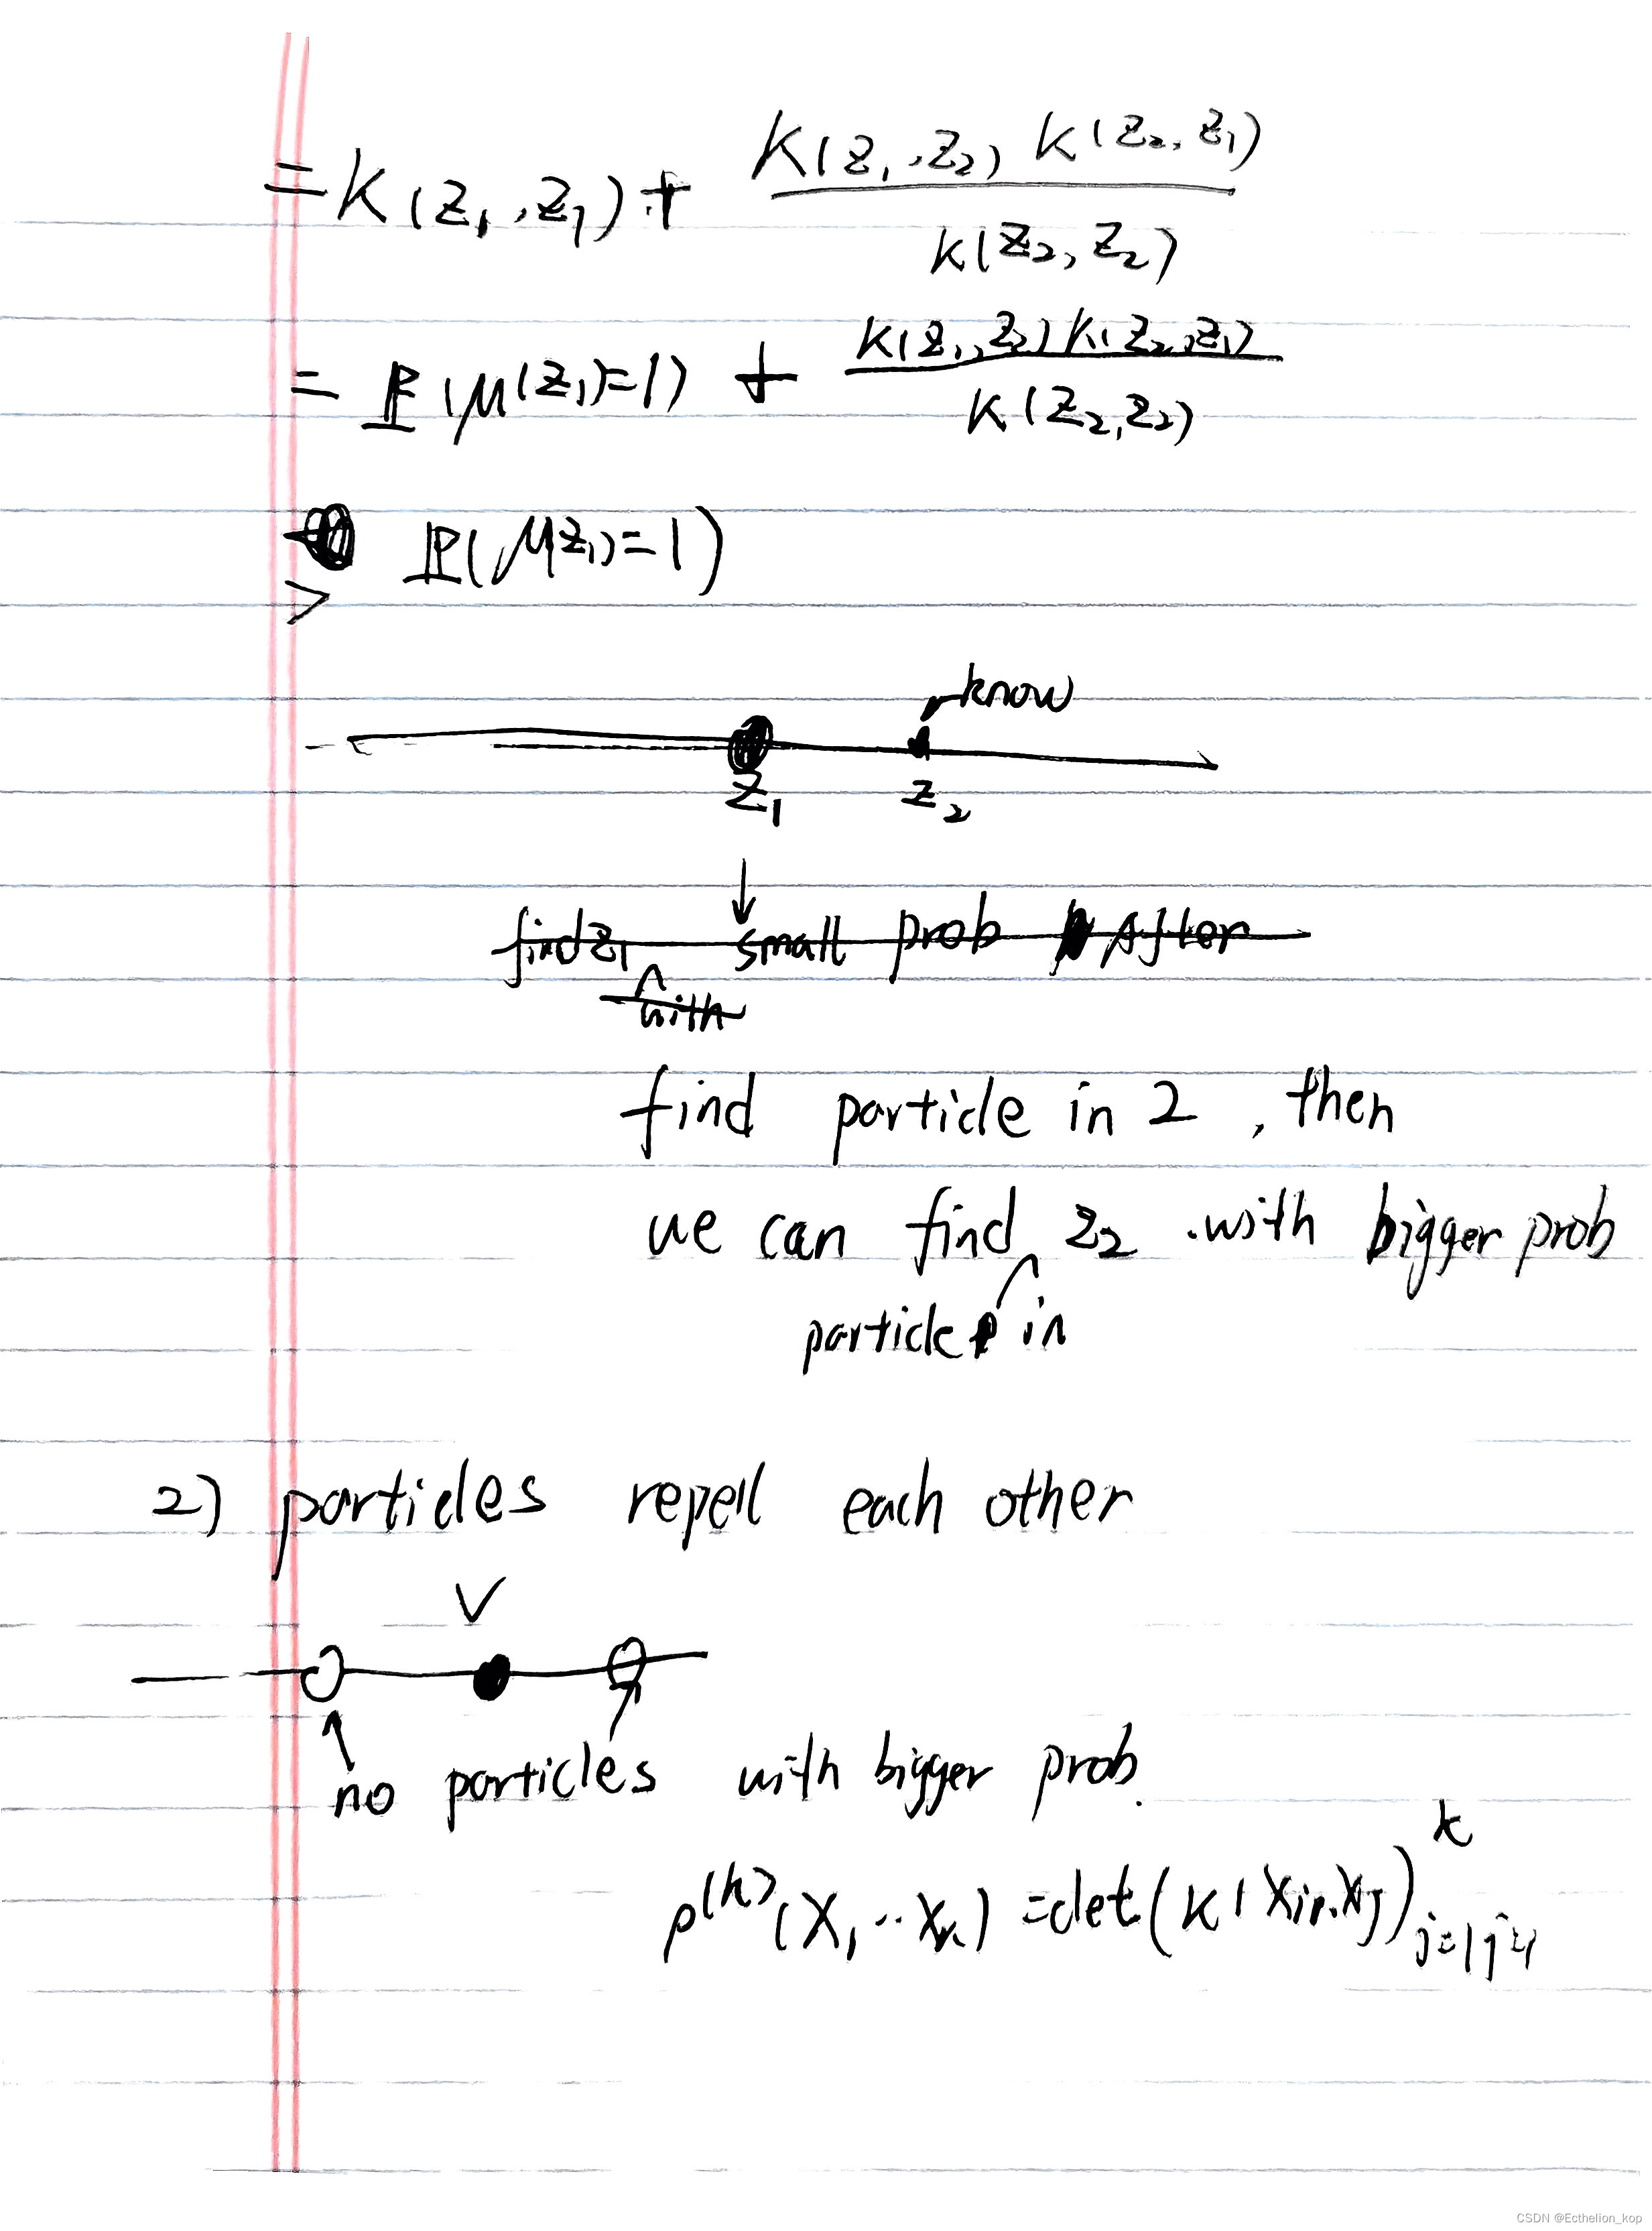 = K(z₁, z₁) + K(z₁, z₂) K(z₂, z₁) / K(z₂, z₂)
= ℙ(μ(z₁)=1) + K(z₁, z₂) K(z₂, z₁) / K(z₂, z₂)
ℙ(μz₁)=1)
>
know
z₁ z₂
↓
find z₁ small prob After
with
find particle in 2, then
we can find z₂ .with bigger prob
particle in
2) particles repell each other
V
no particles with bigger prob.
ρ⁽ᵏ⁾(x₁ ·· xₖ) = det (K(xᵢ, xⱼ)ᵏ
CSDN @Ecthelion_kop